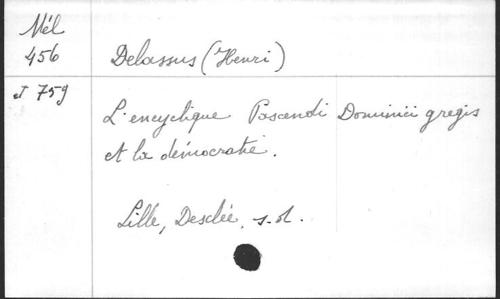 Mél
456
et 759
Delassus (Henri)
L'encyclique Pascendi Dominici gregis
et la démocratie.
Lille, Desclée, s.d.